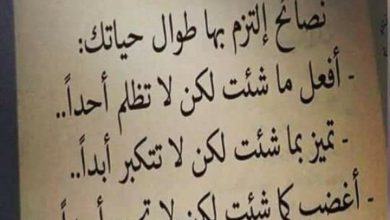 نصائح إلتزم بها طوال حياتك:
- أفعل ما شئت لكن لا تظلم أحداً..
- تميز بما شئت لكن لا تتكبر أبداً..
- أغضب كما شئت لكن لا